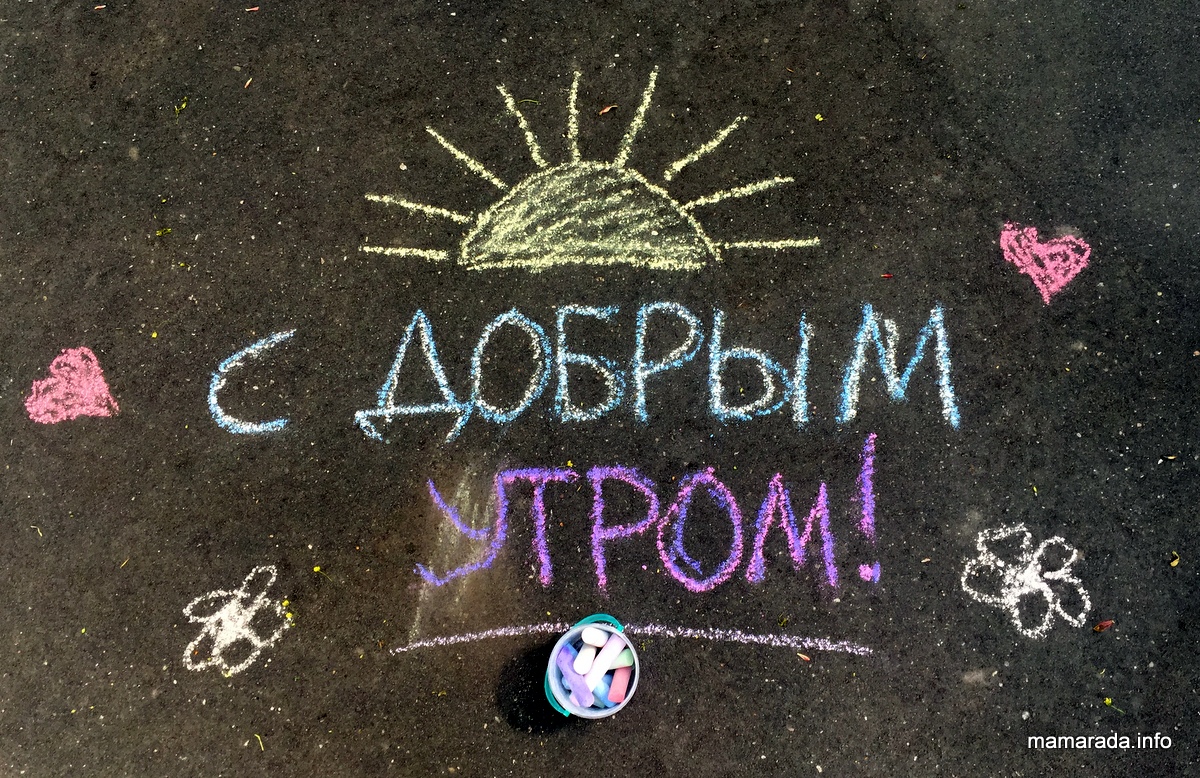 С ДОБРЫМ
УТРОМ!
mamarada.info